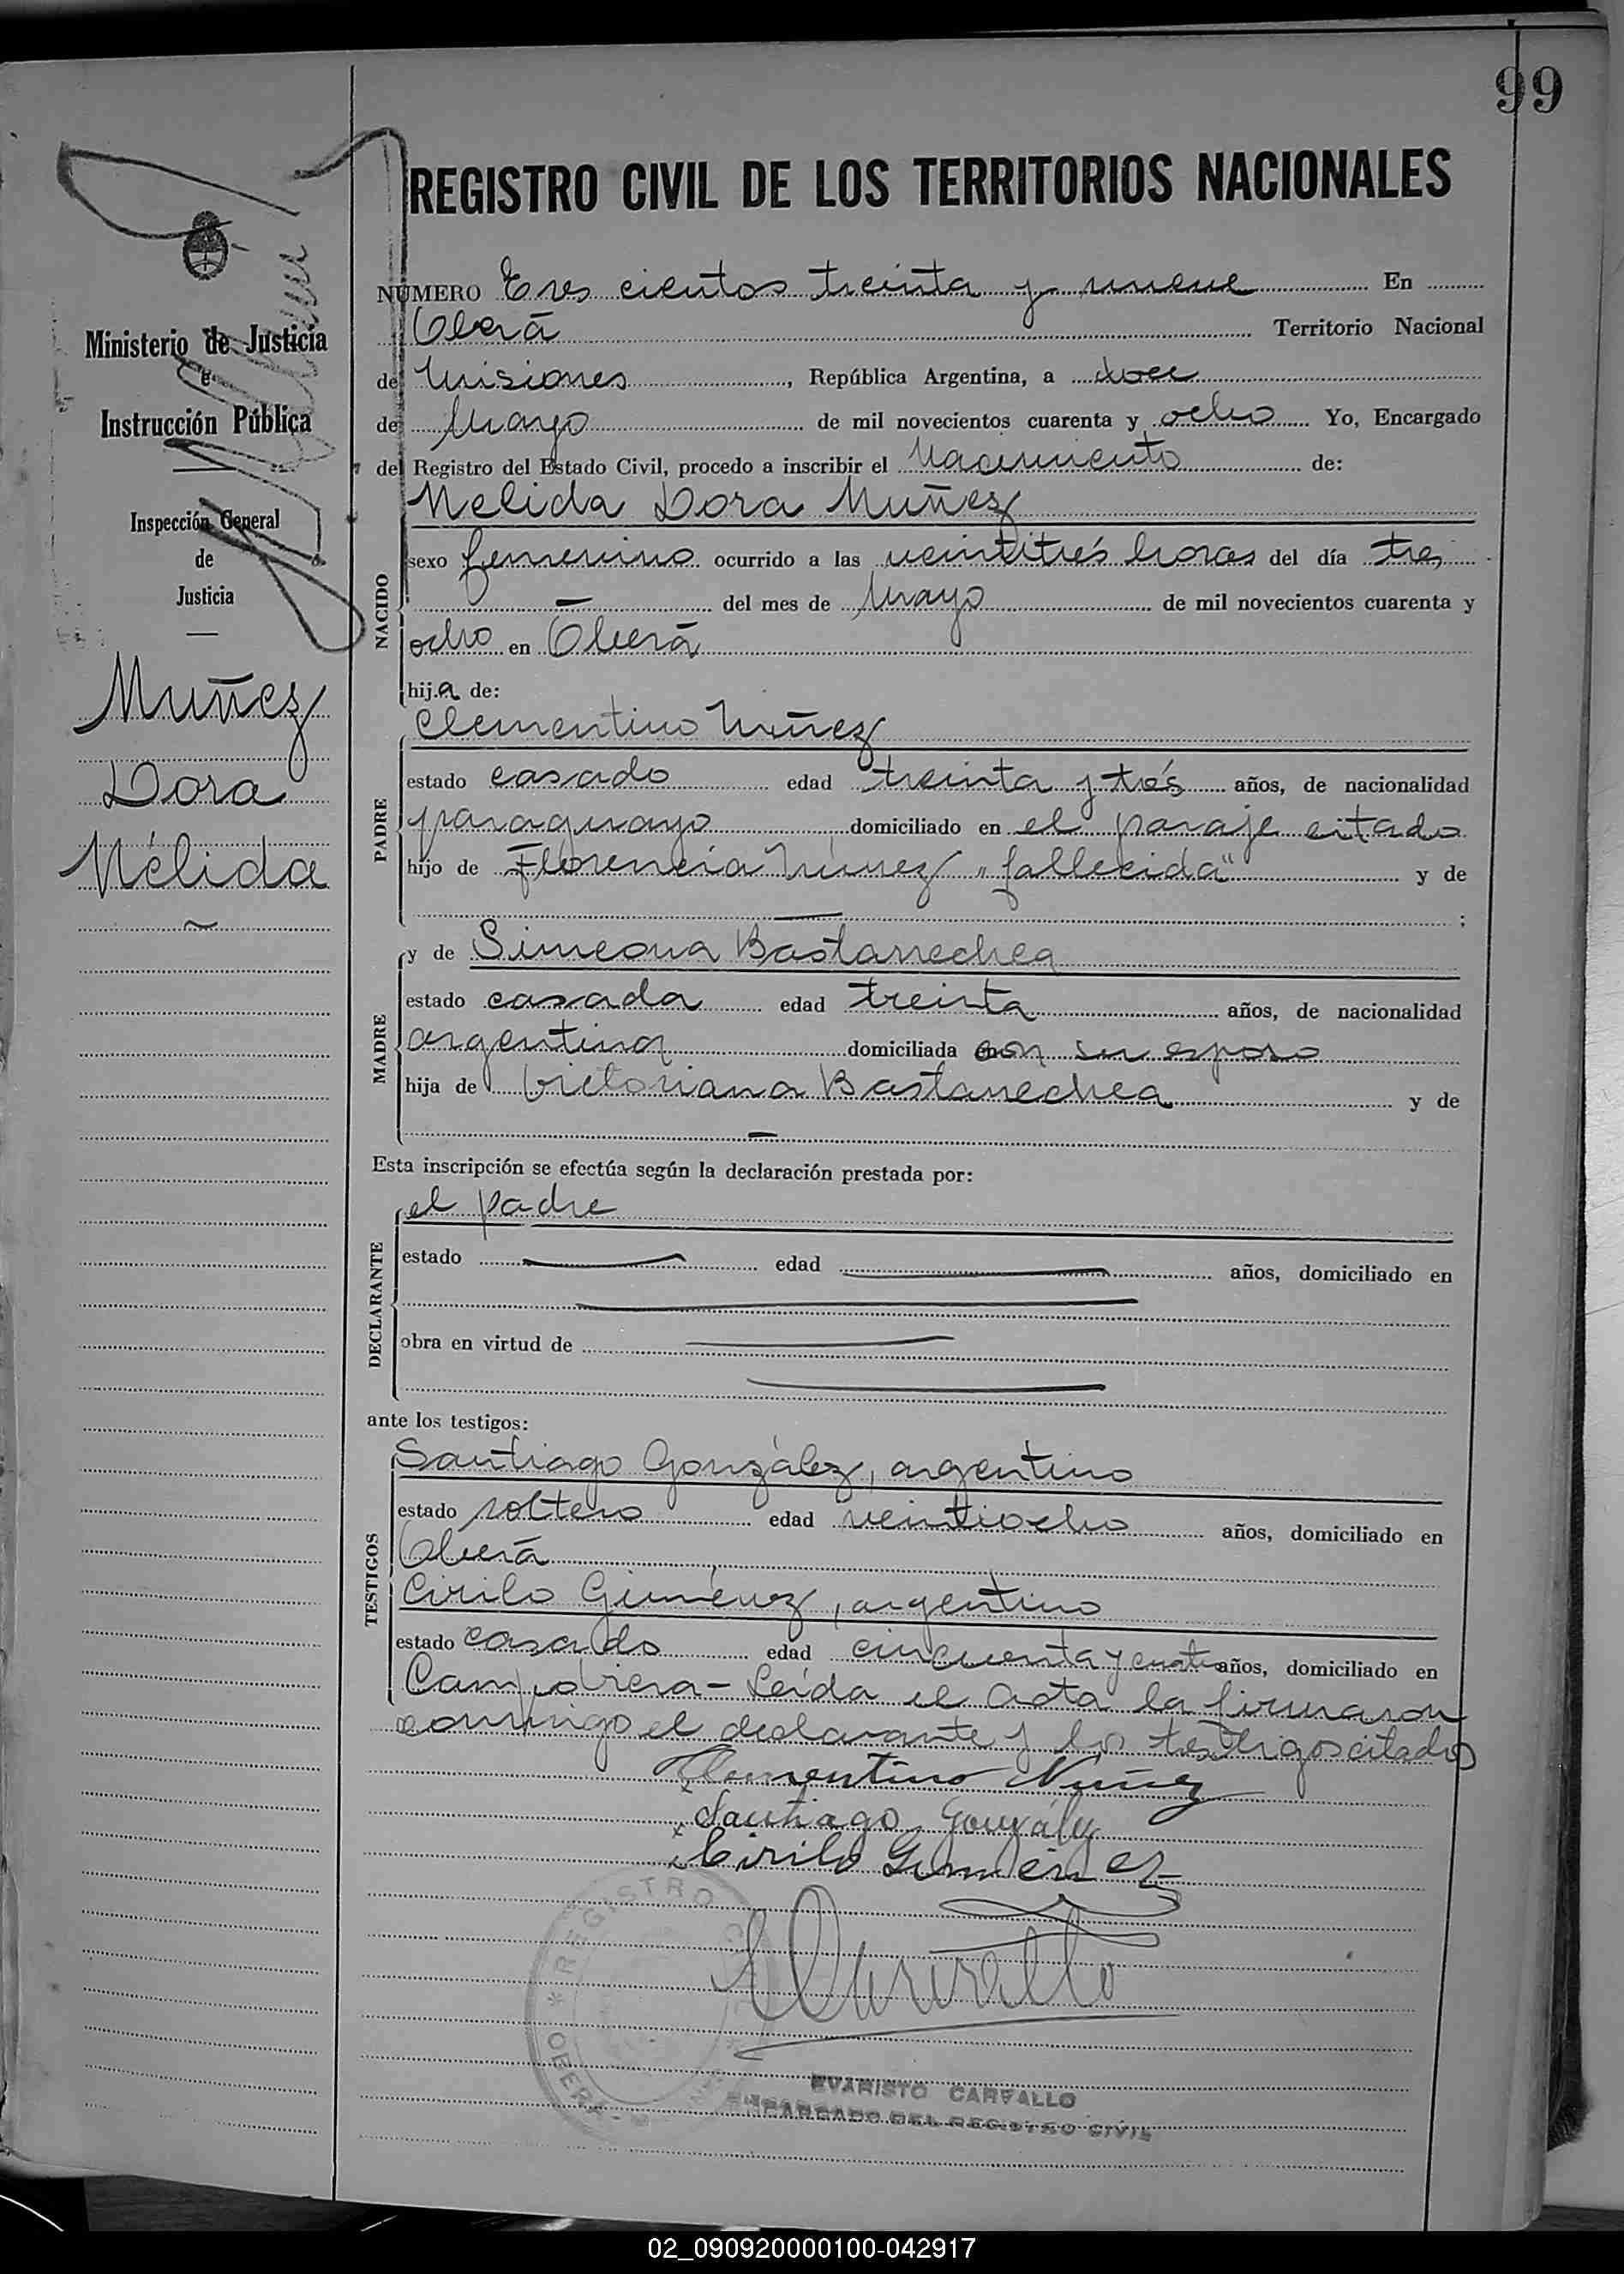 99
REGISTRO CIVIL DE LOS TERRITORIOS NACIONALES
Ministerio de Justicia
e
Instrucción Pública
Inspección General
de
Justicia
Muñez
Dora
Nélida
NÚMERO Tres cientos treinta y nueve En
Oberá Territorio Nacional
de Misiones, República Argentina, a doce
de Mayo de mil novecientos cuarenta y ocho Yo, Encargado
del Registro del Estado Civil, procedo a inscribir el Nacimiento de:
Nelida Dora Muñez
NACIDO
sexo femenino ocurrido a las veintitrés horas del día tres
del mes de Mayo de mil novecientos cuarenta y
ocho en Oberá
hija de:
Clementino Muñez
PADRE
estado casado edad treinta y trés años, de nacionalidad
paraguayo domiciliado en el paraje citado
hijo de Florencia Núnez "fallecida" y de
;
y de Simeona Bastarrechea
MADRE
estado casada edad treinta años, de nacionalidad
argentina domiciliada con su esposo
hija de Victoriana Bastarrechea y de
Esta inscripción se efectúa según la declaración prestada por:
el padre
DECLARANTE
estado edad años, domiciliado en
obra en virtud de
ante los testigos:
Santiago González, argentino
TESTIGOS
estado soltero edad veintiocho años, domiciliado en
Oberá
Cirilo Giménez, argentino
estado casado edad cincuenta y cuatro años, domiciliado en
Campo Viera - Leída el Acta la firmaron
conmigo el declarante y los testigos citados
Clementino Nuñez
Santiago González
Cirilo Gimenez
REGISTRO
OBERA
EVARISTO CARVALLO
ENCARGADO DEL REGISTRO CIVIL
02_090920000100-042917